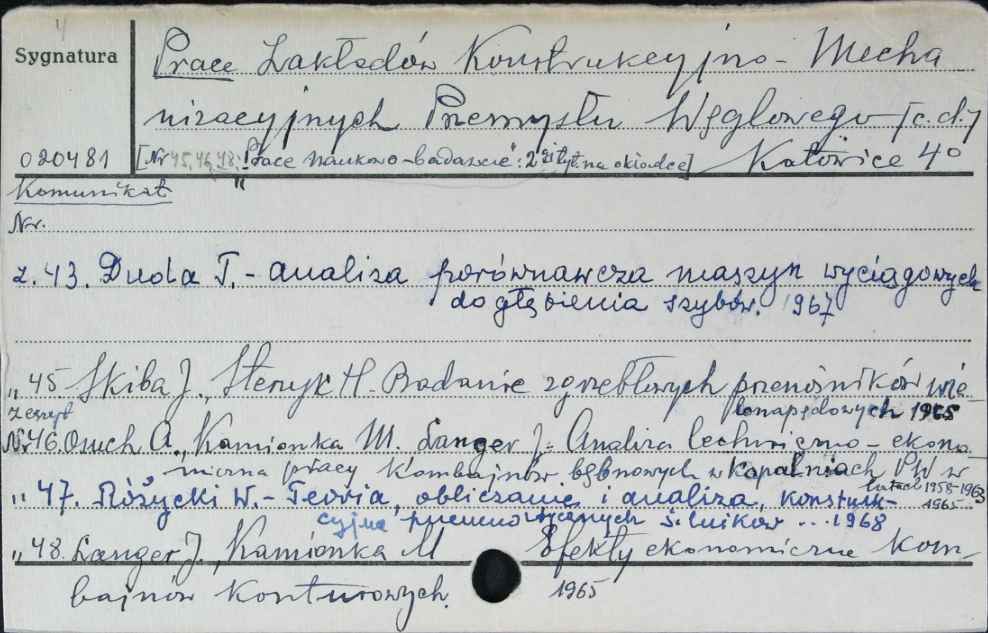 Sygnatura
Prace Zakładów Konstrukcyjno - Mecha
nizacyjnych Przemysłu Węglowego [c.d.]
020481
[Nr 45, 46, 48: "Prace naukowo-badawcze": tyt. na okładce] Katowice 4°
Komunikat
Nr.
z. 43. Duda T. - analiza porównawcza maszyn wyciągowych
do głębienia szybów. 1967
„ 45 Skiba J., Steryk H. Badanie zgrzebłowych przenośników wie
lonapędowych 1965
zeszyt
Nr 46. Osuch A., Kamionka M. Langer J. - Analiza techniczno - ekono
miczna pracy kombajnów bębnowych w kopalniach PW w
latach 1958-1963
1965
„ 47. Różycki W. - Teoria, obliczanie i analiza, konstruk-
cyjna pneumatycznych silników ... 1968
„ 48. Langer J., Kamionka M Efekty ekonomiczne kom-
bajnów konturowych. 1965